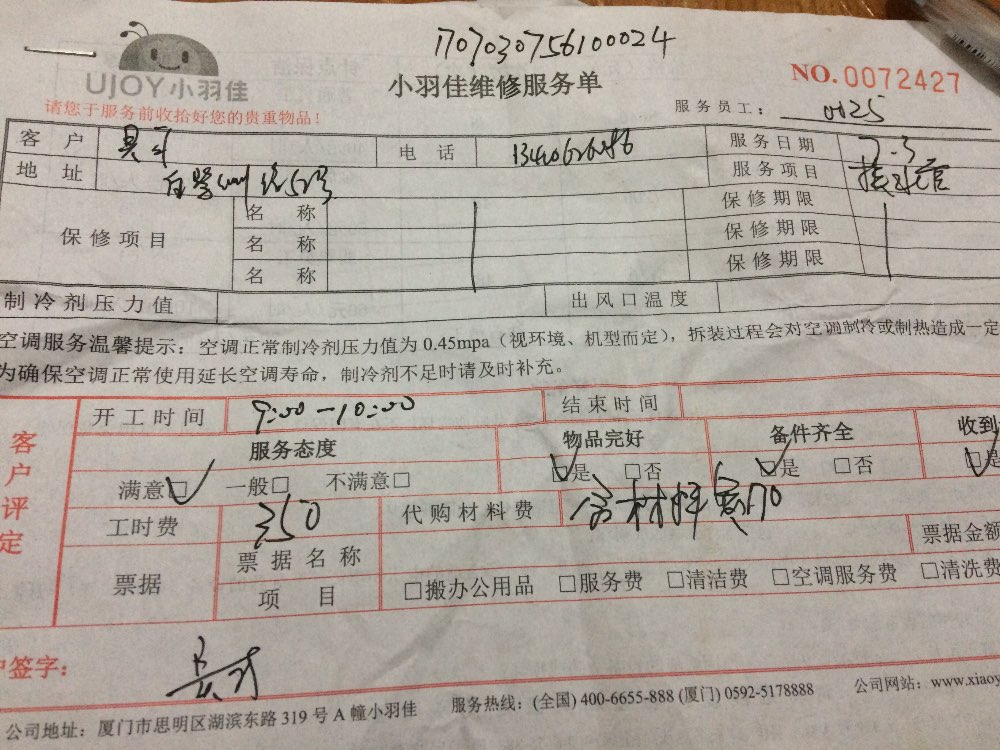 1707030756100024
UJOY小羽佳
小羽佳维修服务单
NO.0072427
请您于服务前收拾好您的贵重物品！
服务员工： 0025
客 户 电 话 服务日期 7.3
地 址 服务项目 接水管
保修项目 名 称 保修期限
名 称 保修期限
名 称 保修期限
制冷剂压力值 出风口温度
空调服务温馨提示：空调正常制冷剂压力值为 0.45mpa（视环境、机型而定），拆装过程会对空调制冷或制热造成一定
为确保空调正常使用延长空调寿命，制冷剂不足时请及时补充。
客户评定
开工时间 9:00-10:00 结束时间
服务态度 物品完好 备件齐全 收到
满意□ 一般□ 不满意□ □是 □否 □是 □否 □是
工时费 350 代购材料费 含材料费170
票据 票据名称 票据金额
项 目 □搬办公用品 □服务费 □清洁费 □空调服务费 □清洗费
户签字：
公司地址：厦门市思明区湖滨东路 319 号 A 幢小羽佳 服务热线：(全国) 400-6655-888 (厦门) 0592-5178888 公司网站：www.xiaoy